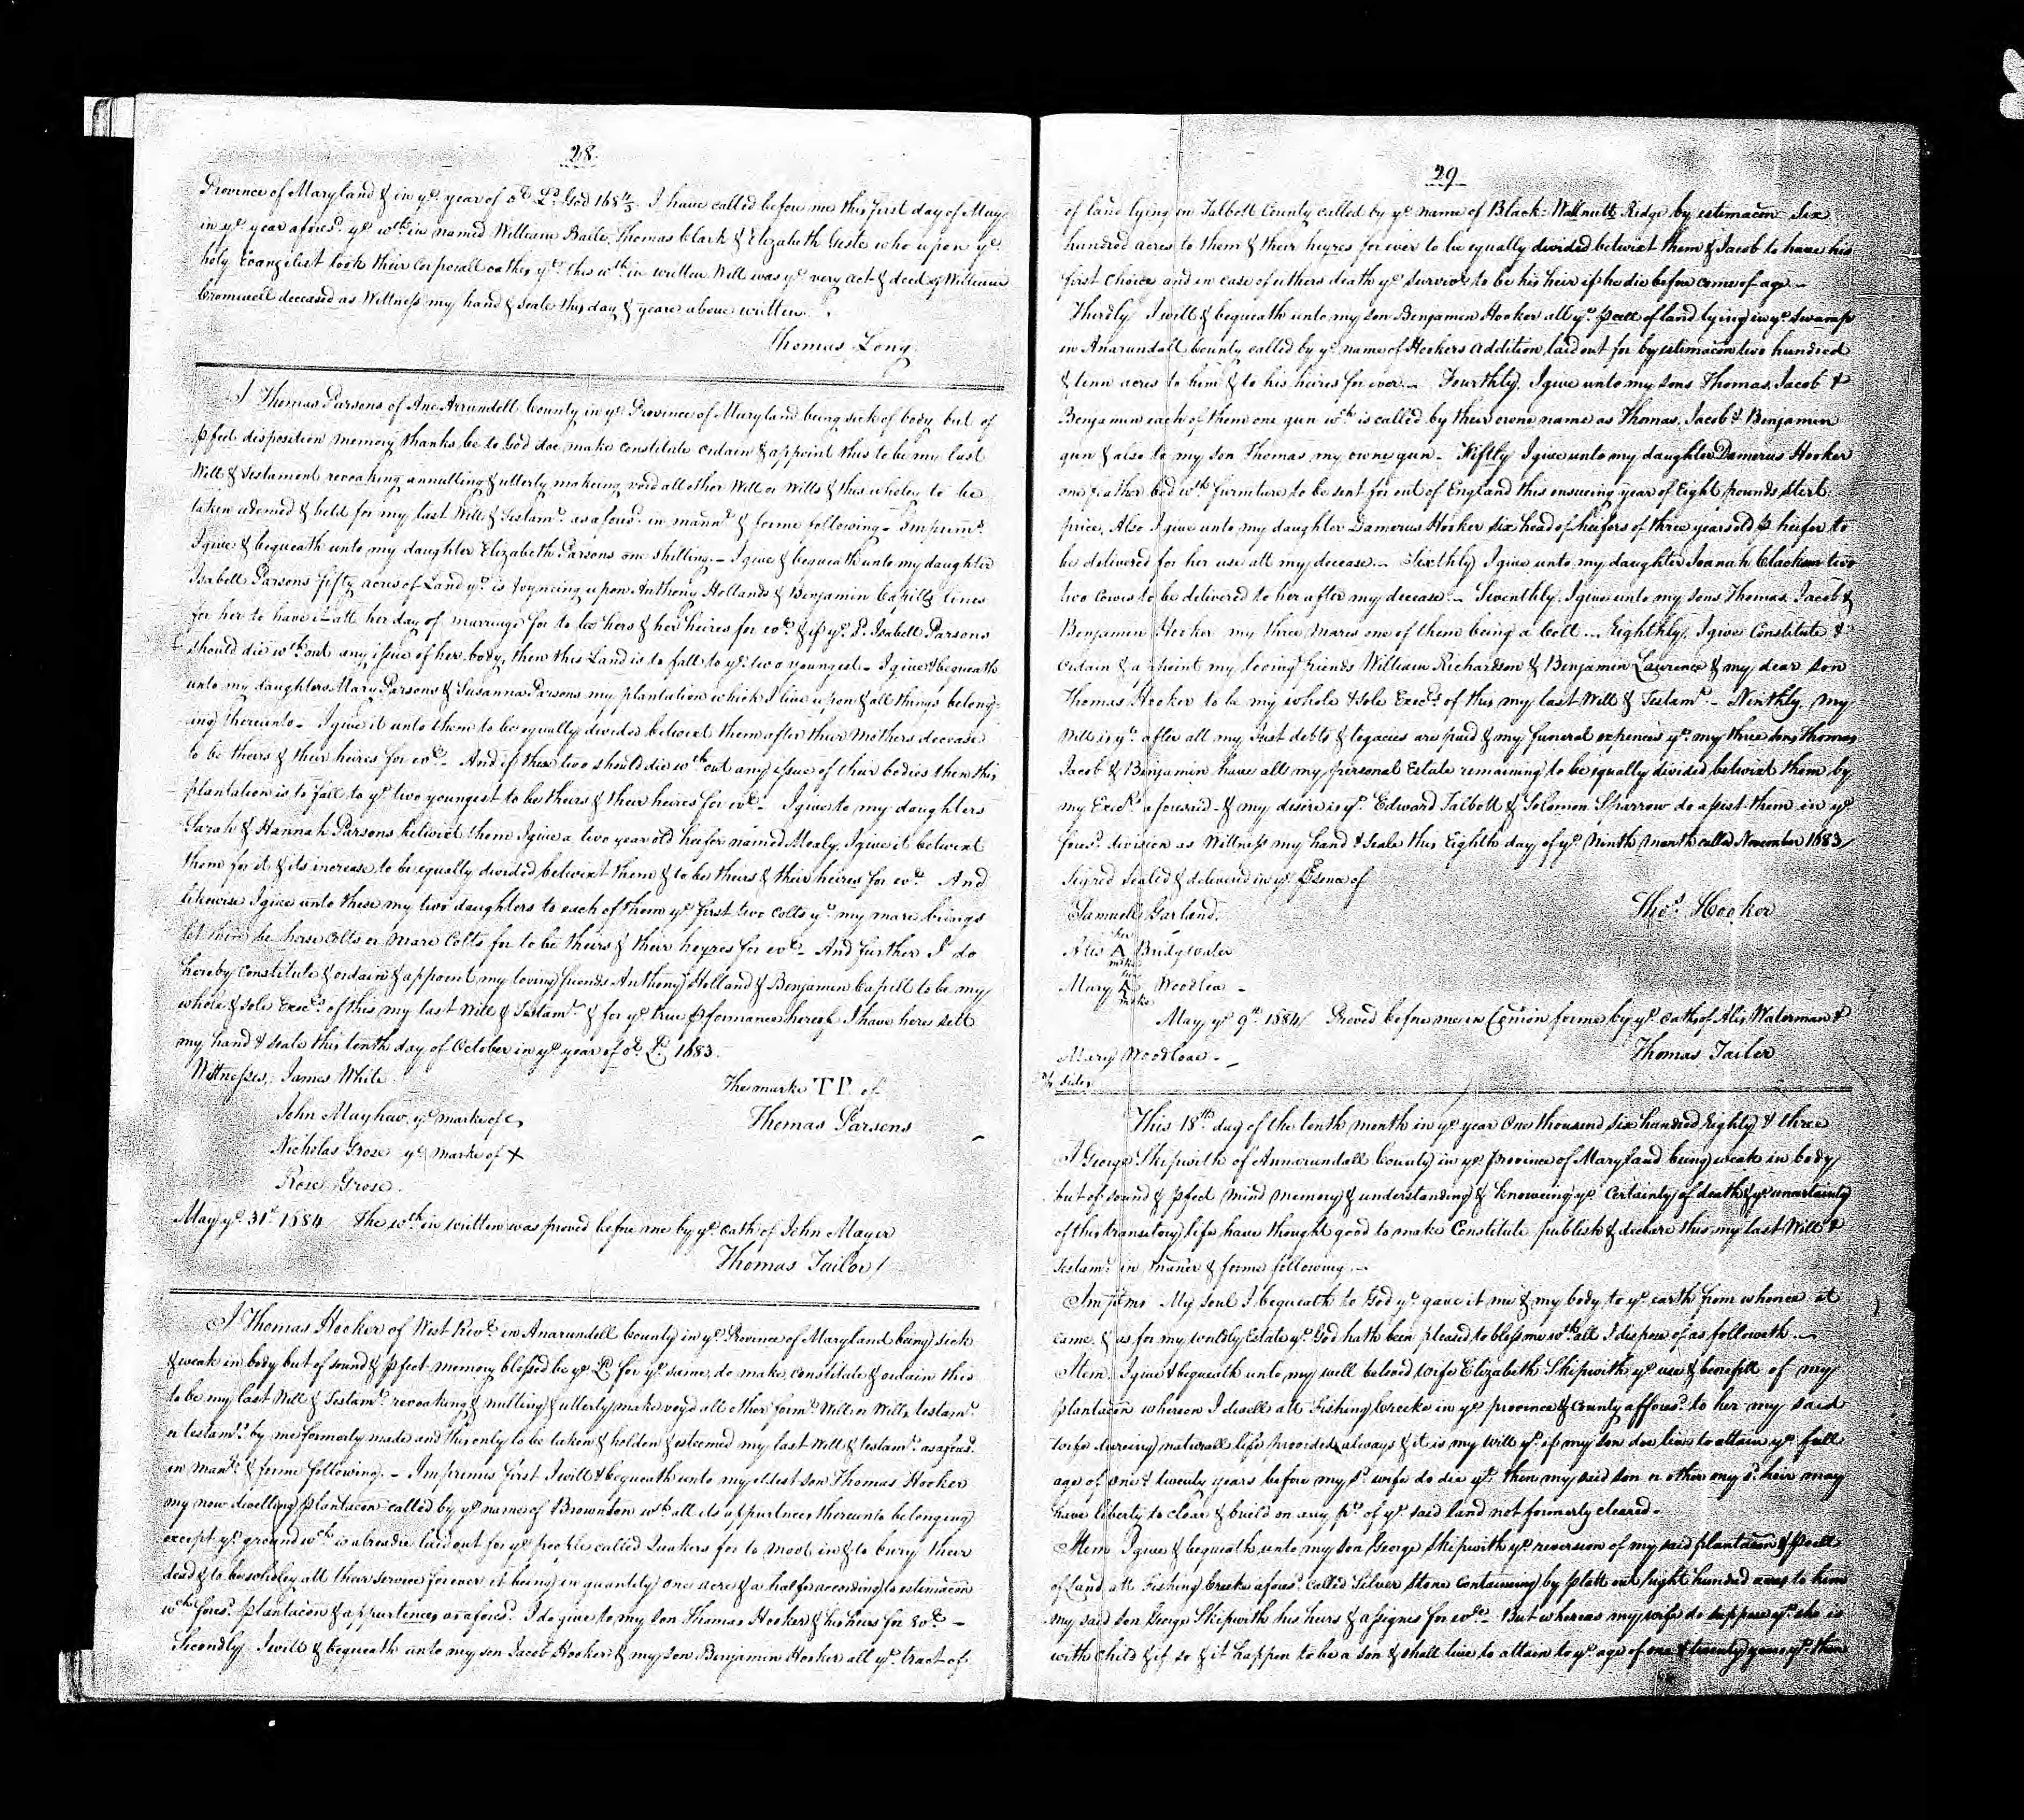 28
Province of Maryland & in ye. year of or. Ld. God 1684/5 I have called before me this first day of May
in ye. year aforesd. ye. wthin named William Baite, Thomas Clark & Elizabeth Geste who upon ye.
holy Evangelist took their Corporall oathes yt. this wthin written Will was ye. very act & deed of William
Cromwell deceased as Wittness my hand & seale this day & yeare above written.
Thomas Long
I Thomas Parsons of Ane Arrundell County in ye. Province of Maryland being sick of body but of
pfect disposition memory thanks be to God doe make constitute ordain & appoint this to be my last
Will & Testament revoaking annulling & utterly makeing void all other Will or Wills & this wholey to be
taken adsemed & held for my last Will & Testamt. as aforesd. in mannr. & forme following - Imprims.
I give & bequeath unto my daughter Elizabeth Parsons one shilling. - I give & bequeath unto my daughter
Isabell Parsons fifty acres of Land yt. is joyneing upon Anthony Hollands & Benjamin Capills lines
for her to have it att her day of marriage for to be hers & her heires for evr. & if ye. sd. Isabell Parsons
should die wthout any issue of her body, then this Land is to fall to ye. two youngest - I give & bequeath
unto my daughters Mary Parsons & Susanna Parsons my plantation which I live upon & all things belong-
ing thereunto - I give it unto them to be equally divided betwixt them after their Mothers decease
to be theirs & their heires for evr. - And if these two should die wthout any issue of their bodies then this
plantation is to fall to ye. two youngest to be theirs & their heires for evr. - I give to my daughters
Sarah & Hannah Parsons betwixt them I give a two year old heifer named Mealy. I give it betwixt
them for it & its increase to be equally divided betwixt them & to be theirs & their heires for evr. And
likewise I give unto these my two daughters to each of them ye. first two colts yt. my mare brings
let them be horse Colts or Mare Colts for to be theirs & their heyres for evr. - And further I do
hereby constitute & ordain & appoint my loving friends Anthony Holland & Benjamin Capell to be my
whole & sole Execrs. of this my last Will & Testamt. & for ye. true pformance hereof I have here sett
my hand & seale this tenth day of October in ye. year of or. Ld. 1683.
Wittnesses, James White
The marke TP of
John Mayhaw ye. marke of
Thomas Parsons
Nicholas Grose ye. marke of X
Rose Grose.
May ye. 31st. 1684 The wthin written was proved before me by ye. oath of John Mayer
Thomas Tailor /
I Thomas Hooker of West Rivr. in Anarundell County in ye. Province of Maryland being sick
& weak in body but of sound & pfect memory blessed be ye. Ld. for ye. same, do make constitute & ordain this
to be my last Will & Testamt. revoaking & nulling & utterly make voyd all other formr. Will or Wills testamt.
or testamts. by me formerly made and this only to be taken & holden & esteemed my last Will & testamt. as aforesd.
in manr. & forme following. - Imprimis first I will & bequeath unto my eldest son Thomas Hooker
my now dwelling plantacon called by ye. name of Brownton wth. all its appurtnces thereunto belonging
except ye. ground wch. is alreadie laid out for ye. people called Quakers for to meet in & to bury their
dead & to be wholey att their service for ever it being in quantity one acre & a half according to estimacon
wch. foresd. plantacon & appurtences as aforesd. I do give to my son Thomas Hooker & his heirs for evr. -
Secondly I will & bequeath unto my son Jacob Hooker & my son Benjamin Hooker all yt. tract of
29
of land lying in Talbott County called by ye. name of Black Wallnutt Ridge by estimacon Six
hundred acres to them & their heyres for ever to be equally divided betwixt them & Jacob to have his
first choice and in case of eithers death ye. survivor to be his heir if he die before come of age -
Thirdly I will & bequeath unto my son Benjamen Hooker all yt. pcell of land lying in ye. swamp
in Anarundell County called by ye. name of Hookers Addition laid out for by estimacon two hundred
& tenn acres to him & to his heires for ever. - Fourthly, I give unto my sons Thomas, Jacob &
Benjamen each of them one gun wch. is called by their owne name as Thomas, Jacob & Benjamin
gun & also to my son Thomas my owne gun - Fiftly I give unto my daughter Damerus Hooker
one feather bed wth. furniture to be sent for out of England this ensueing year of Eight pounds sterl.
price. Also I give unto my daughter Damerus Hooker six head of heifers of three years old p heifer to
be delivered for her use att my decease. - Sixthly I give unto my daughter Joanah Clackson two
two Cowes to be delivered to her after my decease. - Seventhly, I give unto my sons Thomas Jacob &
Benjamen Hooker my three Mares one of them being a Colt - Eighthly, I give Constitute &
ordain & apoint my loving friends William Richardson & Benjamin Lawrence & my dear son
Thomas Hooker to be my whole & sole Execrs. of this my last Will & Testamt. - Ninthly, my
Will is yt. after all my Just debts & legacies are paid & my funeral expences yt. my three sons Thomas
Jacob & Benjamin have all my personal Estate remaining to be equally divided betwixt them by
my Execrs. aforesaid - & my desire is yt. Edward Talbott & Solomon Sparrow do assist them in ye.
foresd. division as Wittness my hand & seale this Eighth day of ye. Ninth month called November 1683/
Signed sealed & delivered in ye. Psence of
Samuell Garland.
Thos. Hooker
her
Alis A Bridgwater
mke
her
Mary A Woodlea -
mke
May, ye. 9th. 1684/ Proved before me in Comon forme by ye. oath of Alis Waterman &
Mary Woodleae. -
Thomas Tailer
This 18th. day of the tenth month in ye. year One thousand six hundred Eighty & three
I George Skipwith of Annarundall County in ye. Province of Maryland being weak in body
but of sound & pfect mind memory & understanding & knoweing ye. Certainty of death & ye. uncertainty
of this transitory life have thought good to make Constitute publish & declare this my last Will &
Testamt. in maner & forme following. -
Impms My Soul I bequeath to God yt. gave it me & my body to ye. earth from whence it
came & as for my worldly Estate yt. God hath been pleased to bless me wthall I dispose of as followeth. -
Item I give & bequeath unto my well beloved wife Elizabeth Skipwith ye. use & benefitt of my
plantacon whereon I dwell att Fishing Creeke in ye. province & County afforesd. to her my said
wife dureing naturall life provided always & it is my will yt. if my son doe live to attain ye. full
age of one & twenty years before my sd. wife do die yt. then my said son or other my sd. heir may
have liberty to clear & build on any pt. of ye. said land not formerly cleared -
Item I give & bequeath unto my son George Skipwith ye. reversion of my said plantacon & pcell
of land att Fishing Creeke aforesd. called Silver Stone Containeing by platt out eight hundred acres to him
my said son George Skipwith his heirs & assignes for evr. - But whereas my wife do suppose yt. she is
with child & if so & it happen to be a son & shall live to attain to ye. age of one & twenty years yt. then